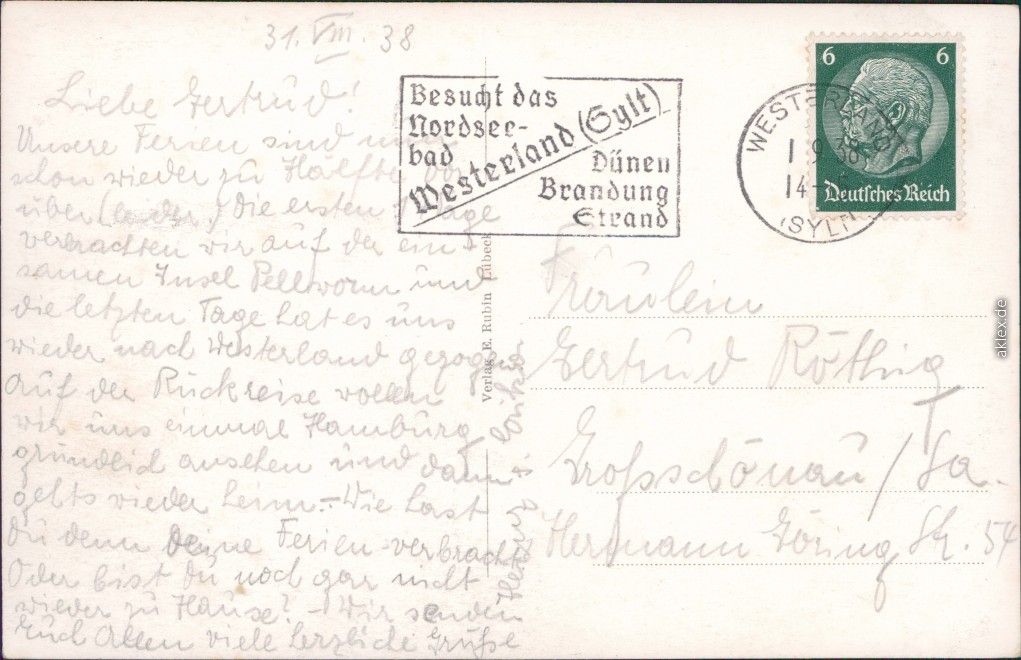 31. VIII. 38
Liebe Gertrud!
Unsere Ferien sind nun
schon wieder zu Hälfte vor
über (leider.) Die ersten Tage
verbrachten wir auf der ein
samen Insel Pellworm und
die letzten Tage hat es uns
wieder nach Westerland gezogen
Auf der Rückreise wollen
wir uns einmal Hamburg
gründlich ansehen und dann
gehts wieder heim. – Wie hast
Du denn Deine Ferien verbracht
Oder bist Du noch gar nicht
wieder zu Hause? – Wir senden
Euch Allen viele herzliche Grüße
Besucht das
Nordsee-
bad
Westerland (Sylt)
Dünen
Brandung
Strand
WESTERLAND
1 9 38
14
(SYLT)
6 6
Deutsches Reich
Verlag E. Rubin Lübeck
Fräulein
Gertrud Röthig
Großschönau / Sa.
Hermann Göring Str. 54
aklex.de